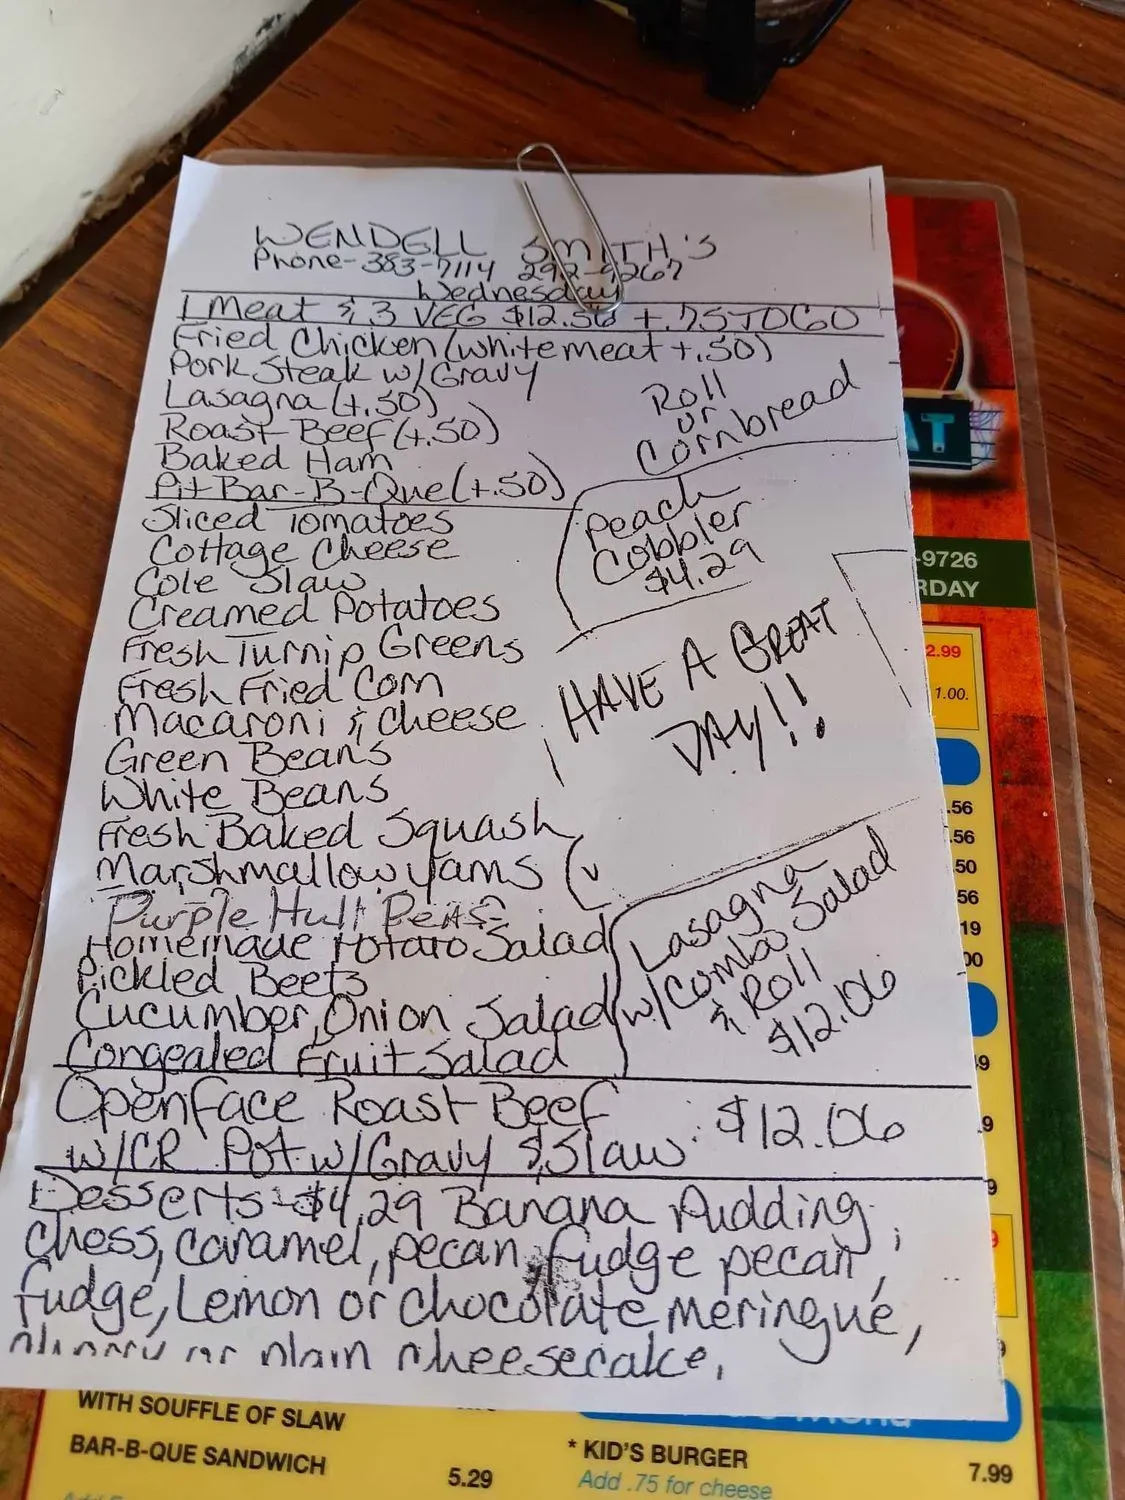 WENDELL SMITH'S
Phone-383-7114 292-9267
Wednesday
1 Meat & 3 VEG $12.56 + .75 TO GO
Fried Chicken (white meat +.50)
Pork Steak w/Gravy
Lasagna (+.50)
Roast Beef (+.50)
Baked Ham
Pit Bar-B-Que (+.50)
Roll
or
Cornbread
Sliced Tomatoes
Cottage Cheese
Cole Slaw
Creamed Potatoes
Fresh Turnip Greens
Fresh Fried Corn
Macaroni & cheese
Green Beans
White Beans
Fresh Baked Squash
Marshmallow yams
Purple Hull Peas
Homemade Potato Salad
Pickled Beets
Cucumber, Onion Salad
Congealed Fruit Salad
Peach
Cobbler
$4.29
HAVE A GREAT
DAY!!
Lasagna
w/Combo Salad
& Roll
$12.06
Openface Roast Beef
w/CR Pot w/Gravy & Slaw $12.06
Desserts-$4.29 Banana Pudding,
chess, caramel, pecan, fudge pecan,
fudge, Lemon or chocolate meringue,
cherry or plain cheesecake,
AT
-9726
RDAY
2.99
1.00.
.56
.56
.50
56
19
00
9
.9
9
9
WITH SOUFFLE OF SLAW
BAR-B-QUE SANDWICH 5.29
* KID'S BURGER 7.99
Add .75 for cheese